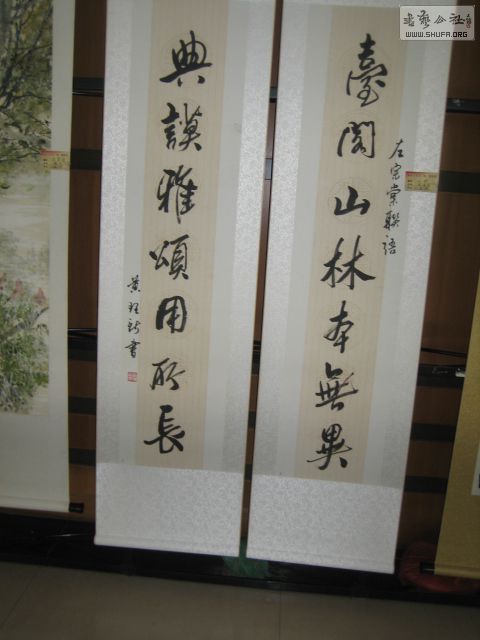 臺閣山林本無異
左宗棠聯語
典謨雅頌用所長
書藝公社
WWW.SHUFA.ORG